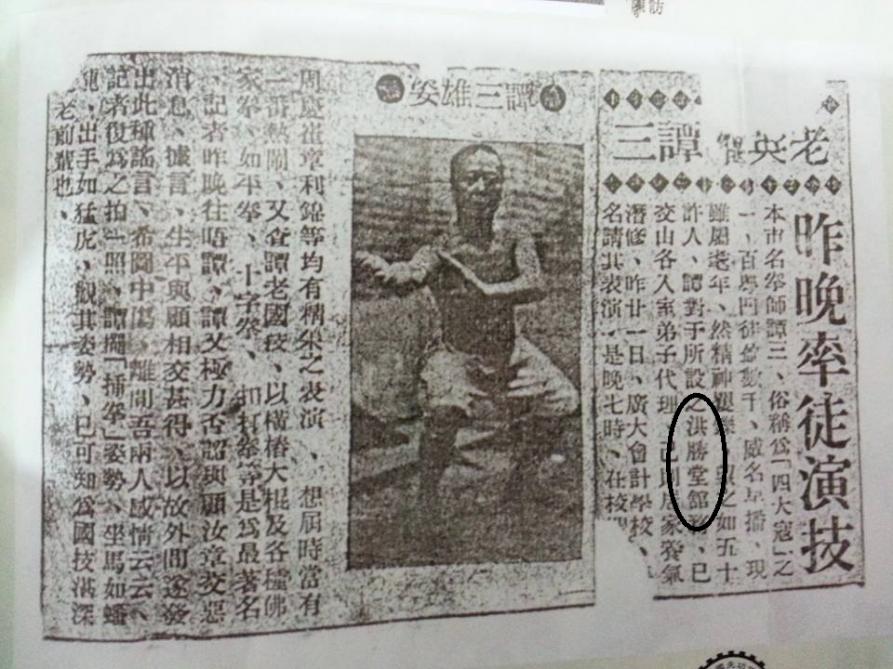 訪
老英雄譚三
昨晚率徒演技
本市名拳師譚三、俗稱為「四大寇」之
一、百粵門徒數千、威名早播、現
雖屬老年、然精神、望之如五十
許人、譚對于所設之洪勝堂館、已
交山各入室弟子代理、己則居家養氣
潛修、昨廿一日、廣大會計學校、
名請其表演、是晚七時、在校
譚三雄姿
周慶崔章利錦等均有精采之表演、想屆時當有
一番熱鬧、又查譚老國技、以橫樁大棍及各種佛
家拳、如平拳、十字拳、扣打拳等是為最著名
、記者昨晚往晤譚、譚又極力否認與顧汝章交惡
消息、據言、生平與顧相交甚得、以故外間遂發
出此種謠言、希圖中傷、離間吾兩人感情云云、
記者復為之拍一照、譚擺「插拳」姿勢、坐馬如蟠
龍、出手如猛虎、觀其姿勢、已可知為國技湛深
老前輩也、